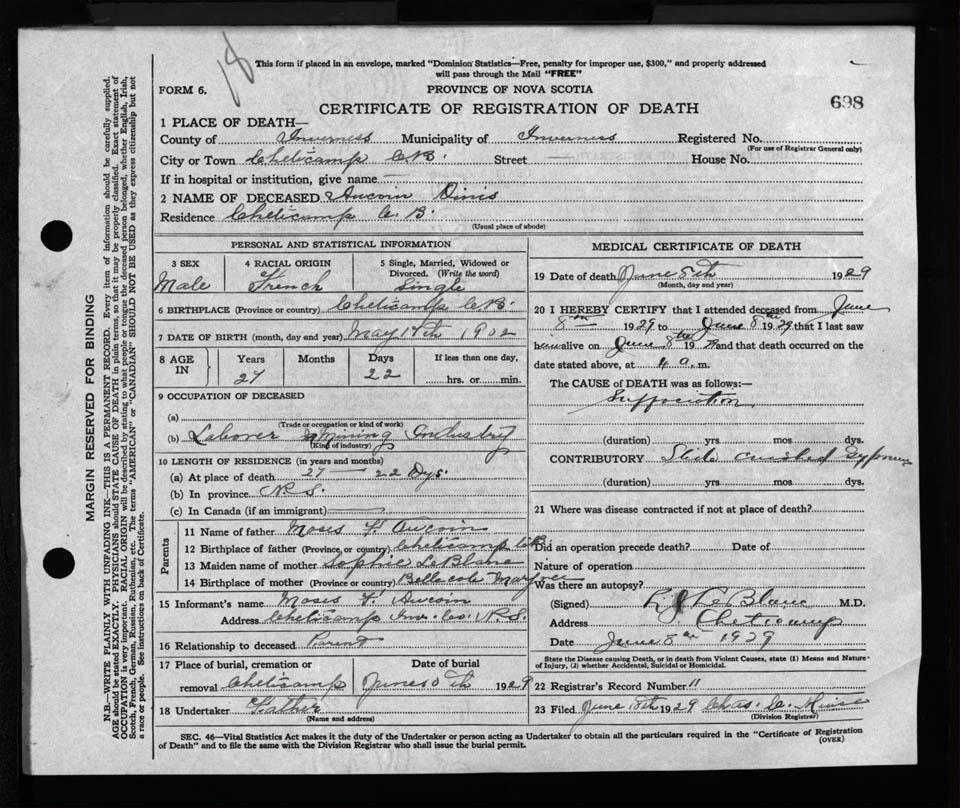 18
This form if placed in an envelope, marked "Dominion Statistics—Free, penalty for improper use, $300," and properly addressed
will pass through the Mail "FREE"
FORM 6.
PROVINCE OF NOVA SCOTIA
698
CERTIFICATE OF REGISTRATION OF DEATH
1 PLACE OF DEATH—
County of Inverness Municipality of Inverness Registered No.
(For use of Registrar General only)
City or Town Cheticamp C.B. Street — House No.
If in hospital or institution, give name —
2 NAME OF DECEASED Aucoin Dinis
Residence Cheticamp C. B.
(Usual place of abode)
PERSONAL AND STATISTICAL INFORMATION
3 SEX Male
4 RACIAL ORIGIN French
5 Single, Married, Widowed or Divorced. (Write the word) Single
6 BIRTHPLACE (Province or country) Cheticamp C.B.
7 DATE OF BIRTH (month, day and year) May 17th 1902
8 AGE IN Years 27 Months Days 22 If less than one day, hrs. or min.
9 OCCUPATION OF DECEASED
(a)
(Trade or occupation or kind of work)
(b) Laborer Mining Industry
(Kind of industry)
10 LENGTH OF RESIDENCE (in years and months)
(a) At place of death 27 — 22 Dys.
(b) In province N.S.
(c) In Canada (if an immigrant)
Parents
11 Name of father Moses F. Aucoin
12 Birthplace of father (Province or country) Cheticamp C.B.
13 Maiden name of mother Sophie LeBlanc
14 Birthplace of mother (Province or country) Bellecote Margree
15 Informant's name Moses F. Aucoin
Address Cheticamp Inv. Co. N.S.
16 Relationship to deceased Parent
17 Place of burial, cremation or removal Cheticamp
Date of burial June 10th 1929
18 Undertaker Father
(Name and address)
MEDICAL CERTIFICATE OF DEATH
19 Date of death June 8th 1929
(Month, day and year)
20 I HEREBY CERTIFY that I attended deceased from June
8th 1929 to June 8th 1929 that I last saw
him alive on June 8th 1929 and that death occurred on the
date stated above, at 4 a. m.
The CAUSE of DEATH was as follows:—
Suffociation
(duration) yrs. mos. dys.
CONTRIBUTORY Slide crushed Gypsum
(duration) yrs. mos. dys.
21 Where was disease contracted if not at place of death?
Did an operation precede death? Date of
Nature of operation
Was there an autopsy?
(Signed) Blanc M.D.
Address Cheticamp
Date June 8th 1929
State the Disease causing Death, or in death from Violent Causes, state (1) Means and Nature
of Injury, (2) whether Accidental, Suicidal or Homicidal.
22 Registrar's Record Number 11
23 Filed June 18th 1929 Chas. C.
(Division Registrar)
SEC. 46—Vital Statistics Act makes it the duty of the Undertaker or person acting as Undertaker to obtain all the particulars required in the "Certificate of Registration
of Death" and to file the same with the Division Registrar who shall issue the burial permit.
(OVER)
MARGIN RESERVED FOR BINDING
N.B.—WRITE PLAINLY WITH UNFADING INK—THIS IS A PERMANENT RECORD. Every item of information should be carefully supplied.
AGE should be stated EXACTLY. PHYSICIANS should STATE CAUSE OF DEATH in plain terms, so that it may be properly classified. Exact statement of
OCCUPATION is very important. RACIAL ORIGIN will be described by stating to what people or tongue the deceased person belonged, whether English, Irish,
Scotch, French, German, Russian, Ruthenian, etc. The terms "AMERICAN" or "CANADIAN" SHOULD NOT BE USED as they express citizenship but not
a race or people. See instructions on back of Certificate.